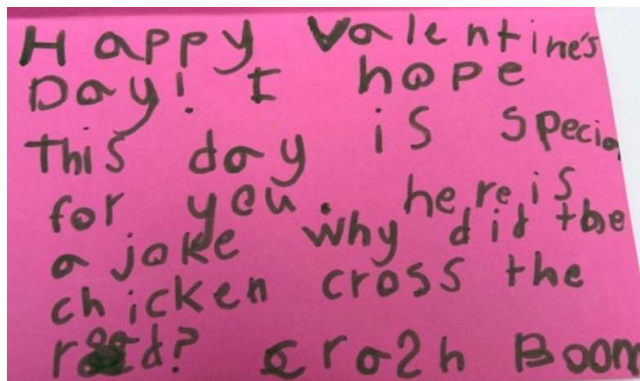 Happy Valentine's
Day! I hope
this day is specia
for you. here is
a joke why did the
chicken cross the
road? cra2h Boom